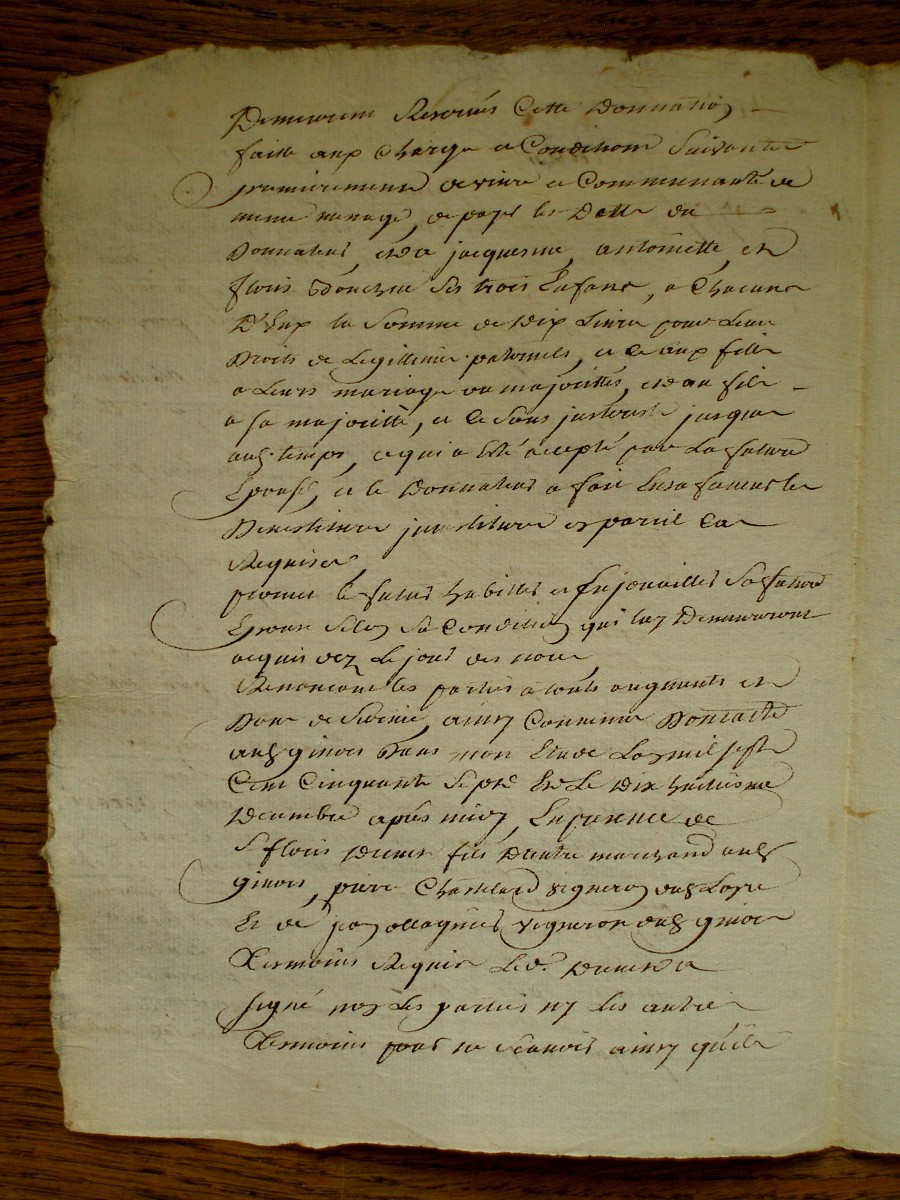 Demeurent Reservés Cette Donnation
faitte aux Charges et Conditions Suivantes
premierement de vivre en Communauté de
meme menage, de payer les Dettes du
Donnateur, et a jacquesme, antoinette, et
floris ses trois Enfans, a Chacuns
D'Eux la Somme de Dix Livres pour Leurs
Droits de Legittimes paternels, et ce aux filles
a Leurs mariage ou majorittés, et au fils
a sa majoritté, et ce Sans jusques
aud. temps, ce qui a Esté accepté par La future
Epouse, et le Donnateur a fait En sa faveur les
Devestitures investitures et pareil Cas
Requises,
promet le futur habiller et Enjoualler Sa future
Epouse Selon Sa Condition qui luy Demeureront
acquis dez Le jour des noces
Renonceant les parties a touts augments et
Dons de Survie, ainsy Convenu
aud. ginois Dans mon Etude La mil sept
Cent Cinquante Sept Et Le Dix huitieme
Decembre après midy, En presence de
S. floris fils marchand aud.
ginois, pierre vigneron aud.
Et de jean vigneron aud. ginois
Temoins Requis Led.
signé non Les parties ny Les autres
Temoins pour ne Scavoir ainsy qu'ils